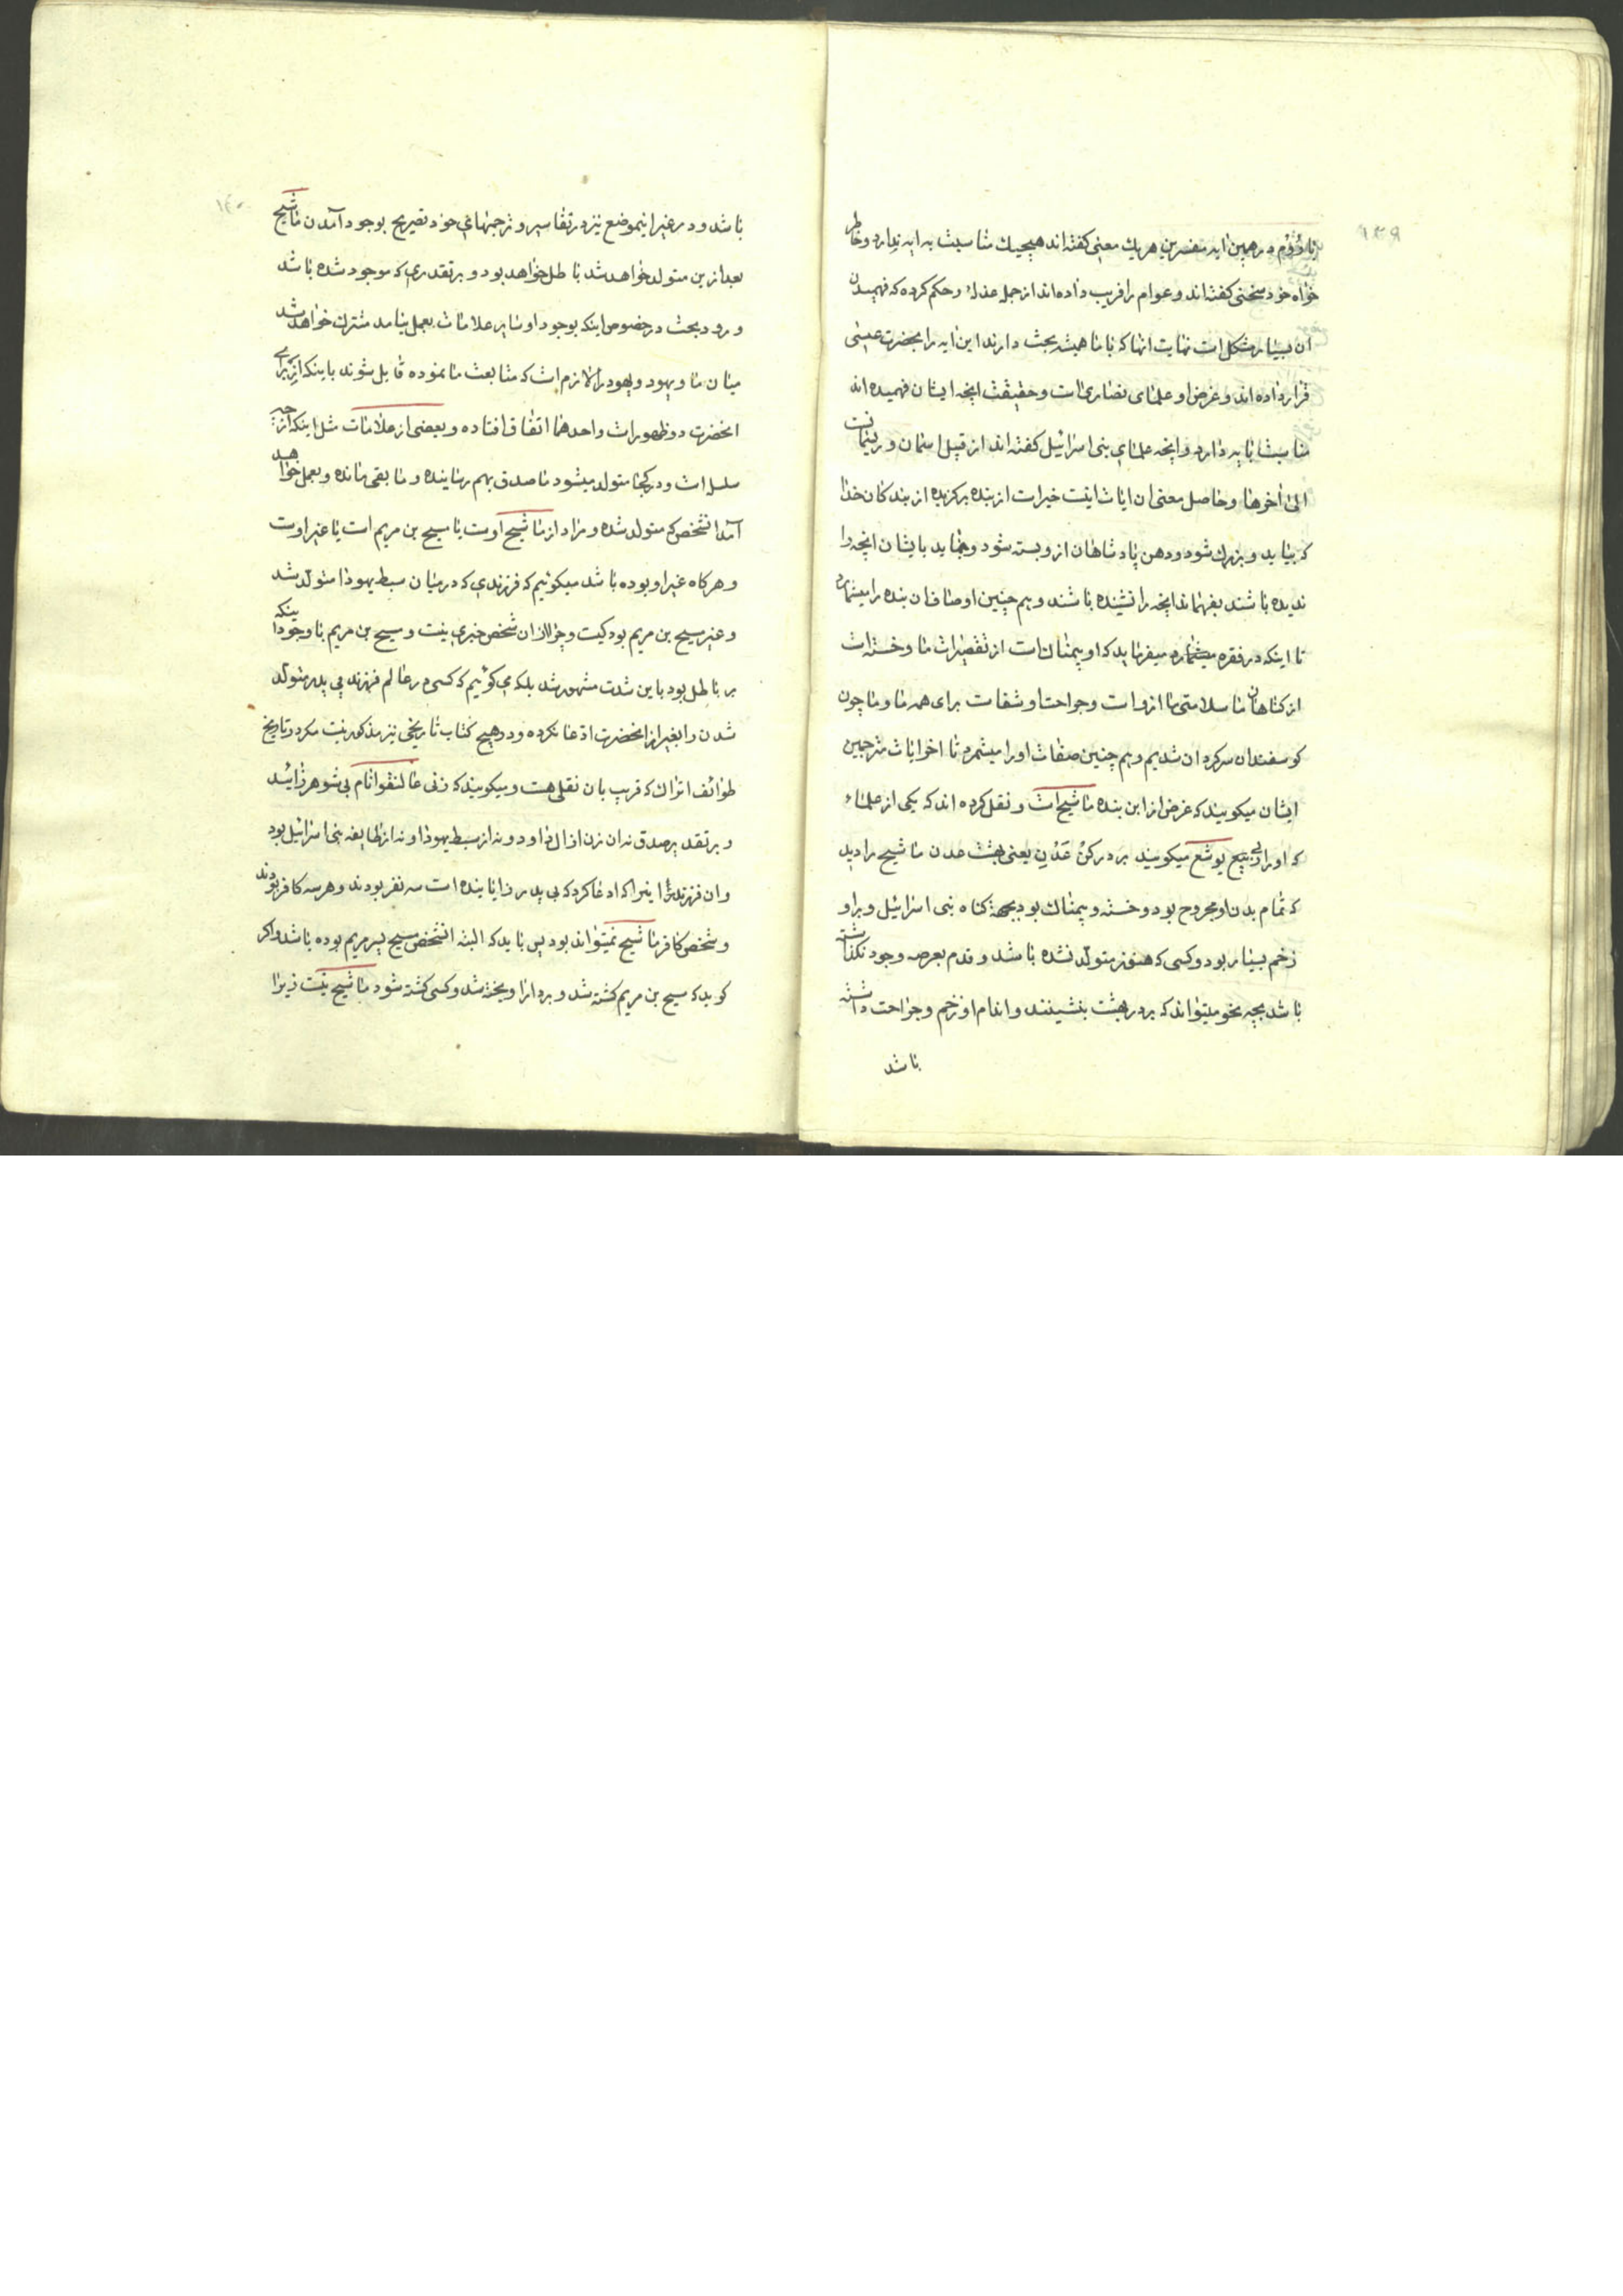 ۱۳۹
در همین ایه مفسرین هر یك معنی کفته‌اند هیچیك مناسبت به ایه ندارد و خاطر
خواه خود سخنی کفته‌اند و عوام را فریب داده‌اند از جمله و حکم کرده که فهمیدن
ان بسیار مشکل است نهایت انها که با ما همیشه بحث دارند این ایه را بحضرت عیسی
قرار داده‌اند و غرض او علمای نصاری است و حقیقت انچه ایشان فهمیده‌اند
مناسبت بایه دارد و انچه علمای بنی اسرائیل کفته‌اند از قبیل اسمان و ریسمانست
الی اخرها و حاصل معنی ان ایات اینست خبر است از بنده برکزیده از بندکان خدا
که بیاید و بزرك شود و دهن پادشاهان از و بسته شود و بنماید بایشان انچه را
ندیده باشند بفهماند انچه را نشنیده باشند و هم چنین اوصاف ان بنده را میشمارد
تا اینکه در فقره میفرماید که او بیمناك است از تقصیرات ما و خسته است
از کناهان ما سلامتی ما از و است و جراحت او شفا ست برای همه ما و ما چون
کوسفندان سرکردان شدیم و هم چنین صفات او را میشمرد تا اخر ایات مترجمین
ایشان میکویند که غرض از این بنده ماشیح است و نقل کرده‌اند که یکی از علماء
که او را ربی یوشع میکویند بر در کن عدن یعنی بهشت عدن ماشیح را دید
که تمام بدن او مجروح بود و خسته و بیمناك بود بجهة کناه بنی اسرائیل و بر او
زخم بسیار بود و کسی که هنوز متولد نشده باشد و قدم بعرصه وجود نکذاشته
باشد بچه نحو میتواند که بر در بهشت بنشیند و اندام او زخم و جراحت داشته
باشد
۱۴۰
باشد و در غیر اینموضع نیز در تفاسیر و ترجمهای خود تصریح بوجود آمدن ماشیح
بعد ازین متولد خواهد شد باطل خواهد بود و بر تقدیری که موجود شده باشد
ورود بحث در خصوص اینکه بوجود او سایر علامات بعمل نیامد مشترك خواهد شد
میان ما و یهود و یهود را لازم است که متابعت ما نموده قایل شوند باینکه از برای
انحضرت دو ظهور است واحدهما اتفاق افتاده و بعضی از علامات مثل اینکه از چه
سلسله است و در کجا متولد میشود ما صدق بهم رسانیده و ما بقی مانده و بعمل خواهد
آمد انشخص که متولد شده و مراد از ماشیح اوست یا مسیح بن مریم است یا غیر اوست
و هر کاه غیر او بوده باشد میکوئیم که فرزندی که در میان سبط یهودا متولد شد
و غیر مسیح بن مریم بود کیست و چرا از ان شخص خبری نیست و مسیح بن مریم با وجود اینکه
بر باطل بود باین شدت مشهور شد بلکه می کوئیم که کسی در عالم فرزند بی پدر متولد
شدن را بغیر از انحضرت ادعا نکرده و در هیچ کتاب تاریخی نیز مذکور نیست مکر در تاریخ
طوائف اتراك که قریب بان نقلی هست و میکویند که زنی عالنقوا نام بی شوهر زائید
و بر تقدیر صدق نه ان زن از ال داود و نه از سبط یهودا و نه از طایفه بنی اسرائیل بود
و ان فرزند را اینرا که ادعا کرد که بی پدر زایانیده است سه نفر بودند و هر سه کافر بودند
و شخص کافر ماشیح نمیتواند بود پس باید که البته انشخص مسیح پسر مریم بوده باشد و اکر
کوید که مسیح بن مریم کشته شد و بر دار اویخته شد و کسی کشته شود ماشیح نیست زیرا